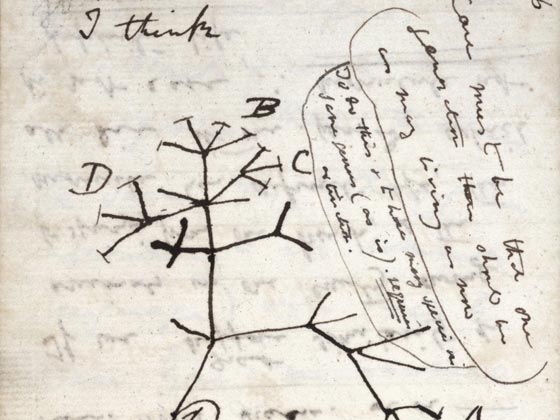 I think
Case must be that one
generation then should be
as many living as now
To do this & to have many species in
same genus (as is). requires
extinction.
B
C
D
A